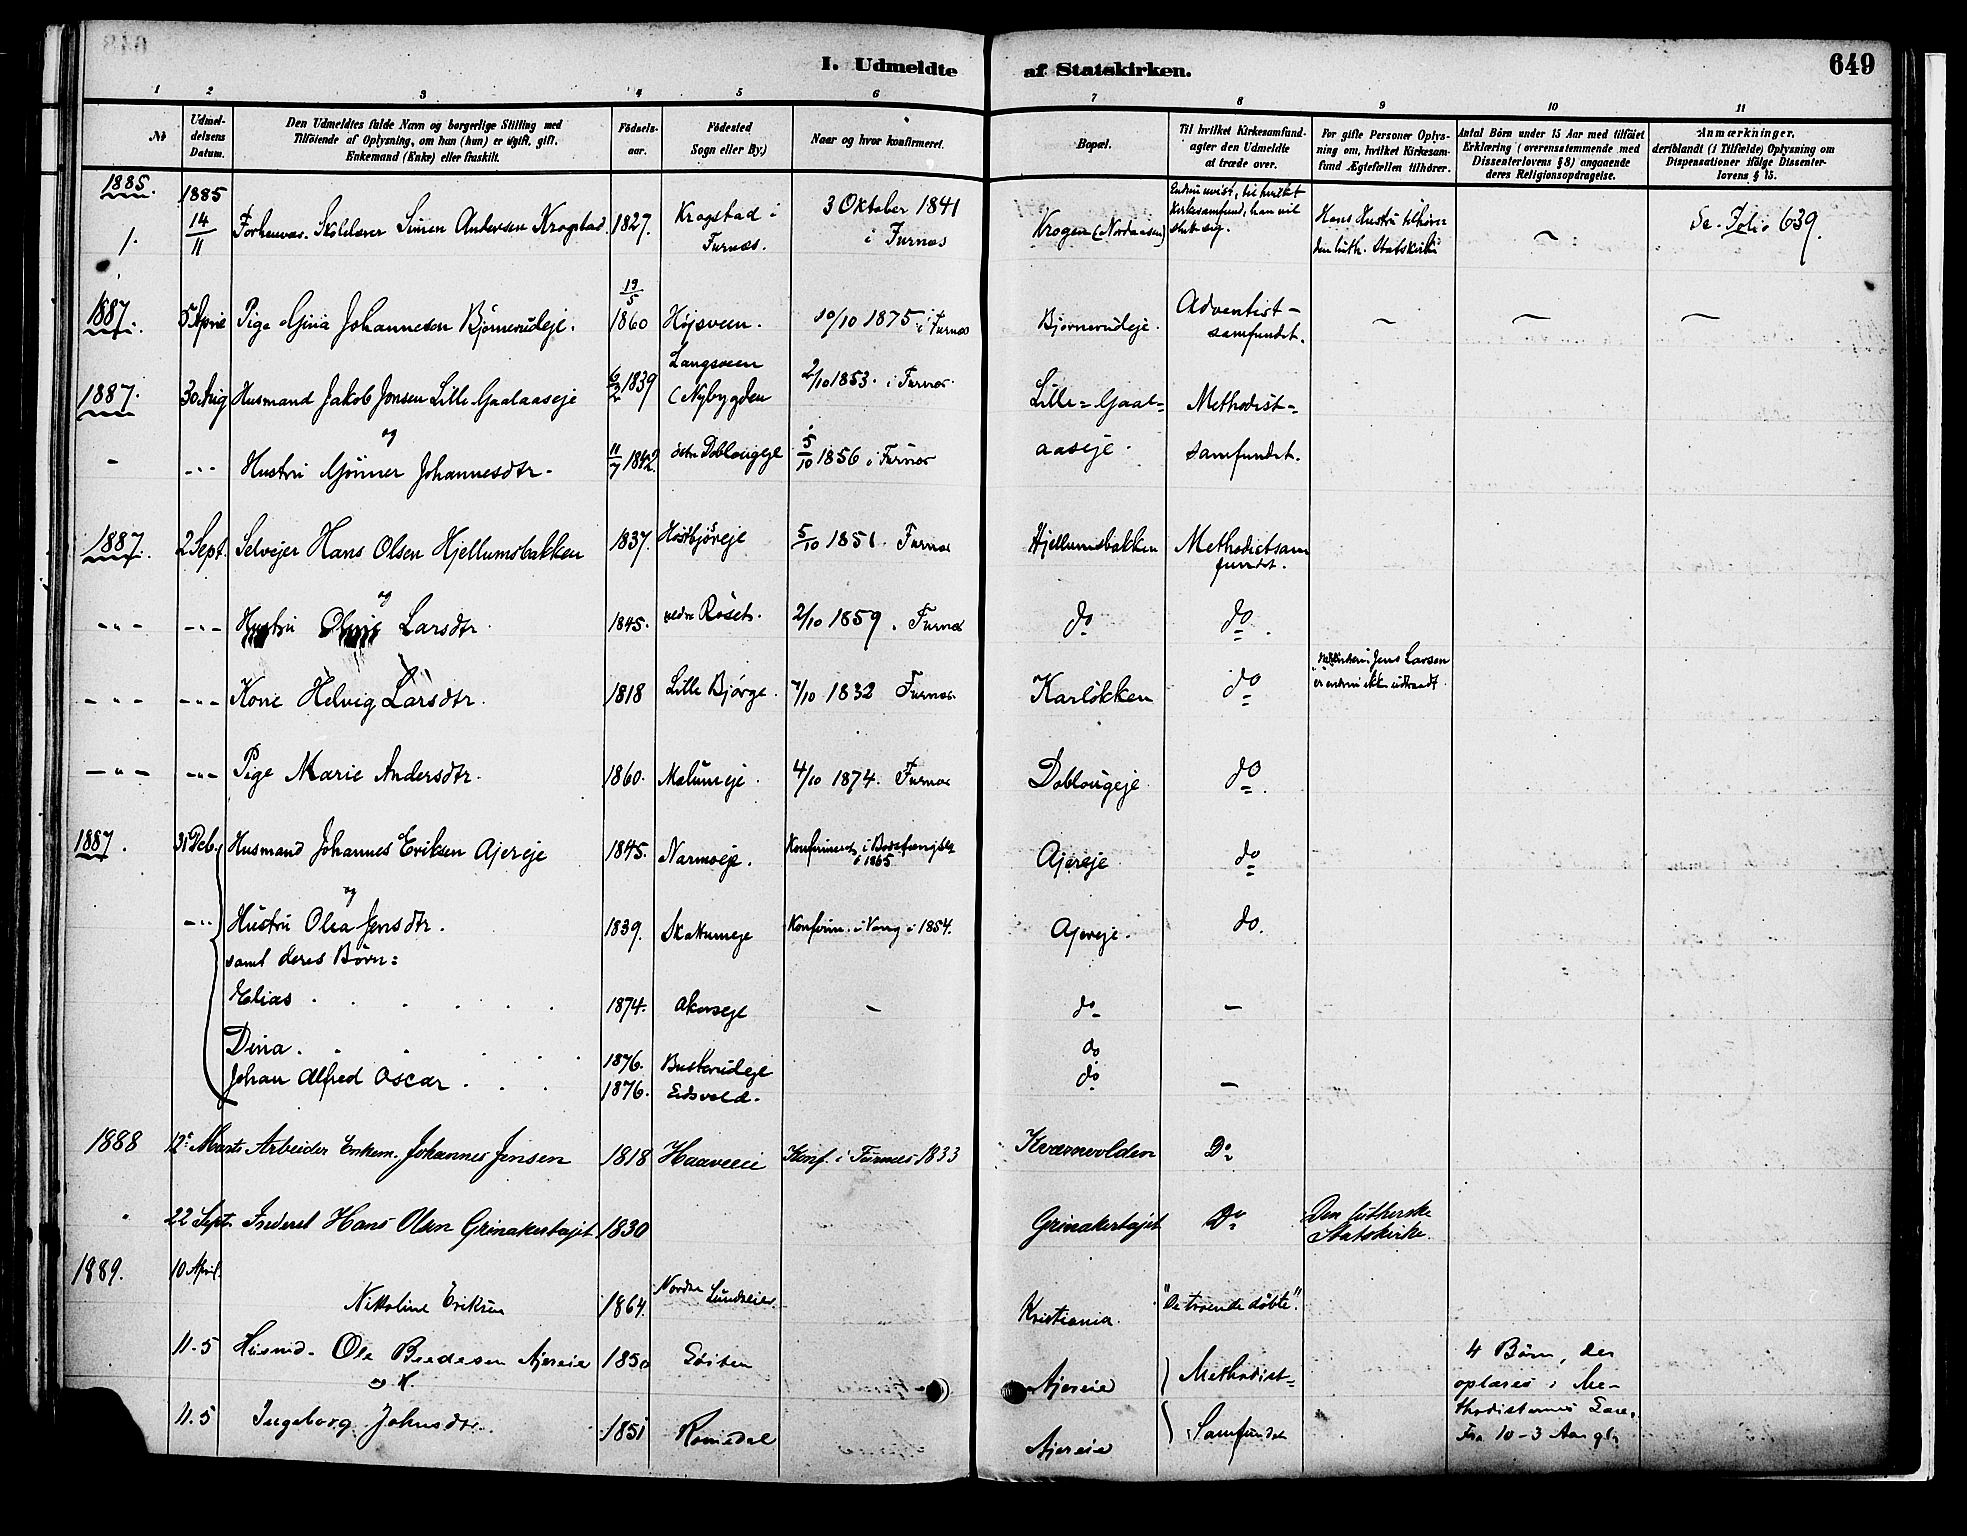 I. Udmeldte af Statskirken.
649
1 2 3 4 5 6 7 8 9 10 11
No
Udmel-
delsens
Datum.
Den Udmeldtes fulde Navn og borgerlige Stilling med
Tilföiende af Oplysning, om han (hun) er ugift, gift,
Enkemand (Enke) eller fraskilt.
Födsels-
aar.
Födested
Sogn eller By.)
Naar og hvor konfirmeret.
Bopæl.
Til hvilket Kirkesamfund-
agter den Udmeldte
at træde over.
For gifte Personer Oplys-
ning om, hvilket Kirkesam-
fund Ægtefællen tilhörer.
Antal Börn under 15 Aar med tilföiet
Erklæring (overensstemmende med
Dissenterlovens § 8) angaaende
deres Religionsopdragelse.
Anmærkninger,
deriblandt (i Tilfælde) Oplysning om
Dispensationer ifölge Dissenter-
lovens § 15.
1885.
1. 1885 14/11 Forhenvær. Skolelærer Simen Andersen Krogstad. 1827. Krogstad i Furnæs. 3 Oktober 1841 i Furnæs Krogen (Nordaasen) Endnu uvist, til hvilket Kirkesamfund, han vil slutte sig. Hans Hustru tilhører den luth. Statskirke ~ Se Folio 639.
1887. 5 April Pige Gina Johannesen Bjørnerudeje. 19/5 1860 Højsveen. 10/10 1875 i Furnæs Bjørnerudeje. Adventist-samfundet. ~ ~ ~
1887. 30 Aug Husmand Jakob Jonsen Lille Gaalaaseje 6/2 1839 Langsveen (Nybygden 2/10 1853. i Furnæs. Lille-Gaal- Methodist-
og
- -"- Hustru Gjøner Johannesdtr. 11/7 1842. østre Doblougeje 5/10 1856 i Furnæs aaseje. samfundet.
1887. 2 Sept. Selvejer Hans Olsen Hjellumsbakken 1837. Høstbjøreje 5/10 1851. Furnæs Hjellumsbakken Methodistsam fundet.
og
-"- -"- Hustru Oline Larsdtr. 1845. nedre Røset. 2/10 1859. Furnæs do do.
-"- -"- Kone Helvig Larsdtr. 1818 Lille Bjørge. 7/10 1832 Furnæs Karløkken do Jens Larsen er endnu ikke udtraadt
-"- -"- Pige Marie Andersdtr. 1860. Malumeje. 4/10 1874. Furnæs Doblougeje do.
1887. 31 Deb. Husmand Johannes Eriksen Ajereje 1845. Narmoeje. Konfirmered i Bodsfængslet i 1865 Ajereje do
og
-"- Hustru Olea Jensdtr. 1839. Skattumeje Konfirm. i Vang i 1854. Ajereje. do.
samt deres Børn:
Elias . . . . . 1874. Akerseje - do -
Dina. . . . . 1876. Busterudeje do
Johan Alfred Oscar . . . 1876. Eidsvold. do -
1888 12te Marts Arbeider Enkem. Johannes Jensen 1818 Haaveeie Konf. i Furnæs 1833 Kværnvolden Do
" 22 Sept. Inderst Hans Olsen Grinakertajet 1830 Grinakertajet Do Den lutherske Statskirke.
1889. 10 April. Nikoline Eriksen 1864 Nordre Lundseier. Kristiania. "De troende døbte".
11.5 Husmd. Ole Bredesen Ajereie 1850 Løiten Ajereie Methodist- 4 Børn, der
og H. oplæres i Me-
11.5 Ingeborg Johnsdtr. 1851 Romedal Ajereie Samfundet thodisternes Lære.
Fra 10-3 Aar gl.